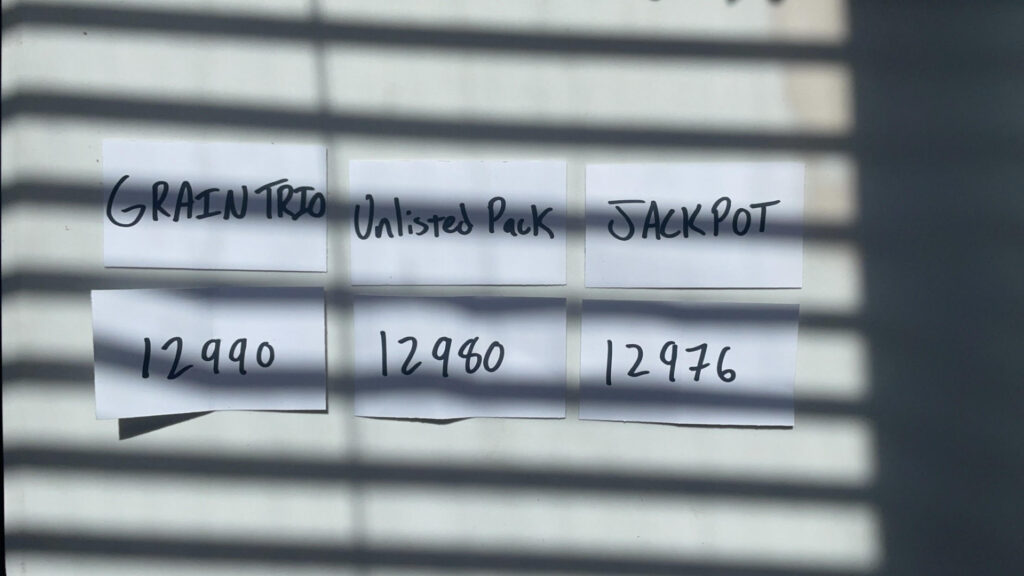 GRAIN TRIO
Unlisted Pack
JACKPOT
12990
12980
12976